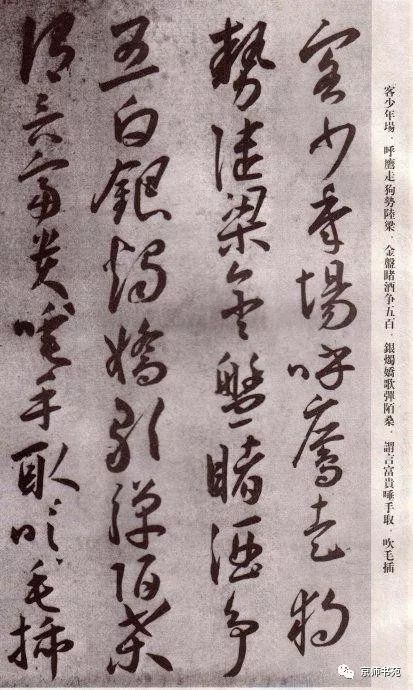 客少年場．呼鷹走狗勢陸梁．金盤睹酒争五百．銀燭嬌歌彈陌桑．謂言富貴唾手取．吹毛插
客少年場呼鷹走狗
勢陸梁金盤睹酒争
五白銀燭嬌歌彈陌桑
謂言富貴唾手取吹毛插
京师书苑